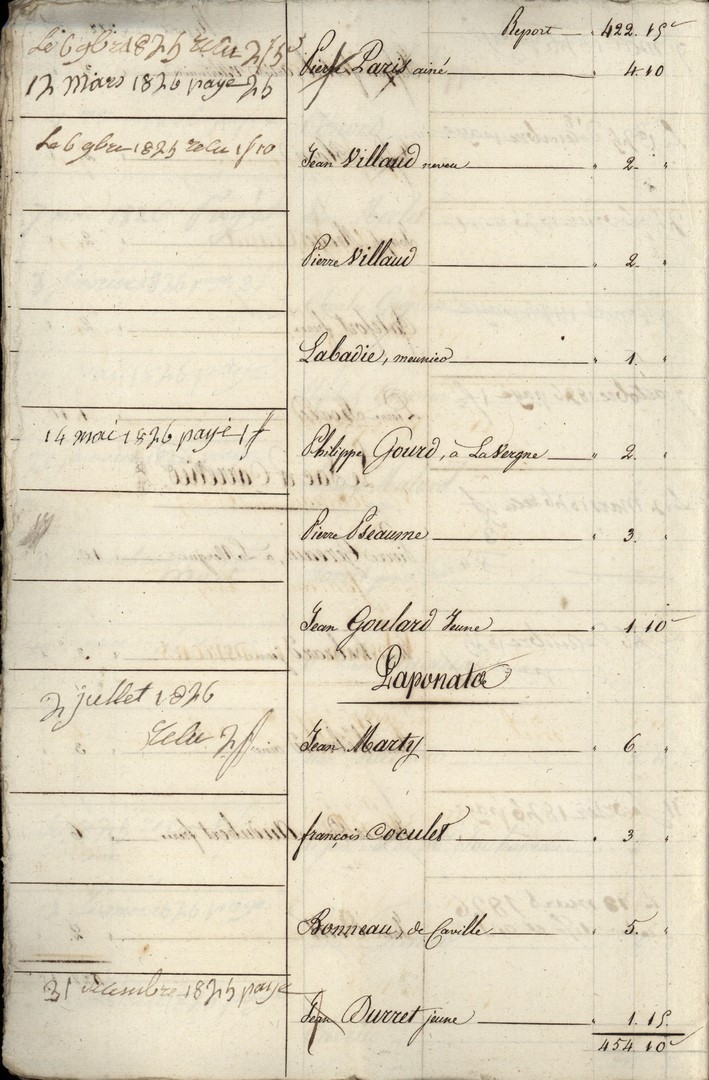 Report 422. 15
Le 6 9bre 1825 recu
12 Mars 1826 paye
Pierre Paris ainé 4. 10
Le 6 9bre 1825 recu 1f 10
Jean Villaud neveu " 2. "
Pierre Villaud " 2 "
Labadie, meunier " 1. "
14 mai 1826 payé 1f
Philippe Gourd, à La Vergne " 2. "
Pierre Pseaume " 3. "
Jean Goulard Jeune " 1. 10
Laponata
2 juillet 1826
Jean Marty " 6. "
Recu 2f
françois Coculet " 3 "
Bonneau, de Caville " 5. "
31 decembre 1825 paye
Jean Durret jeune 1. 15.
454. 10